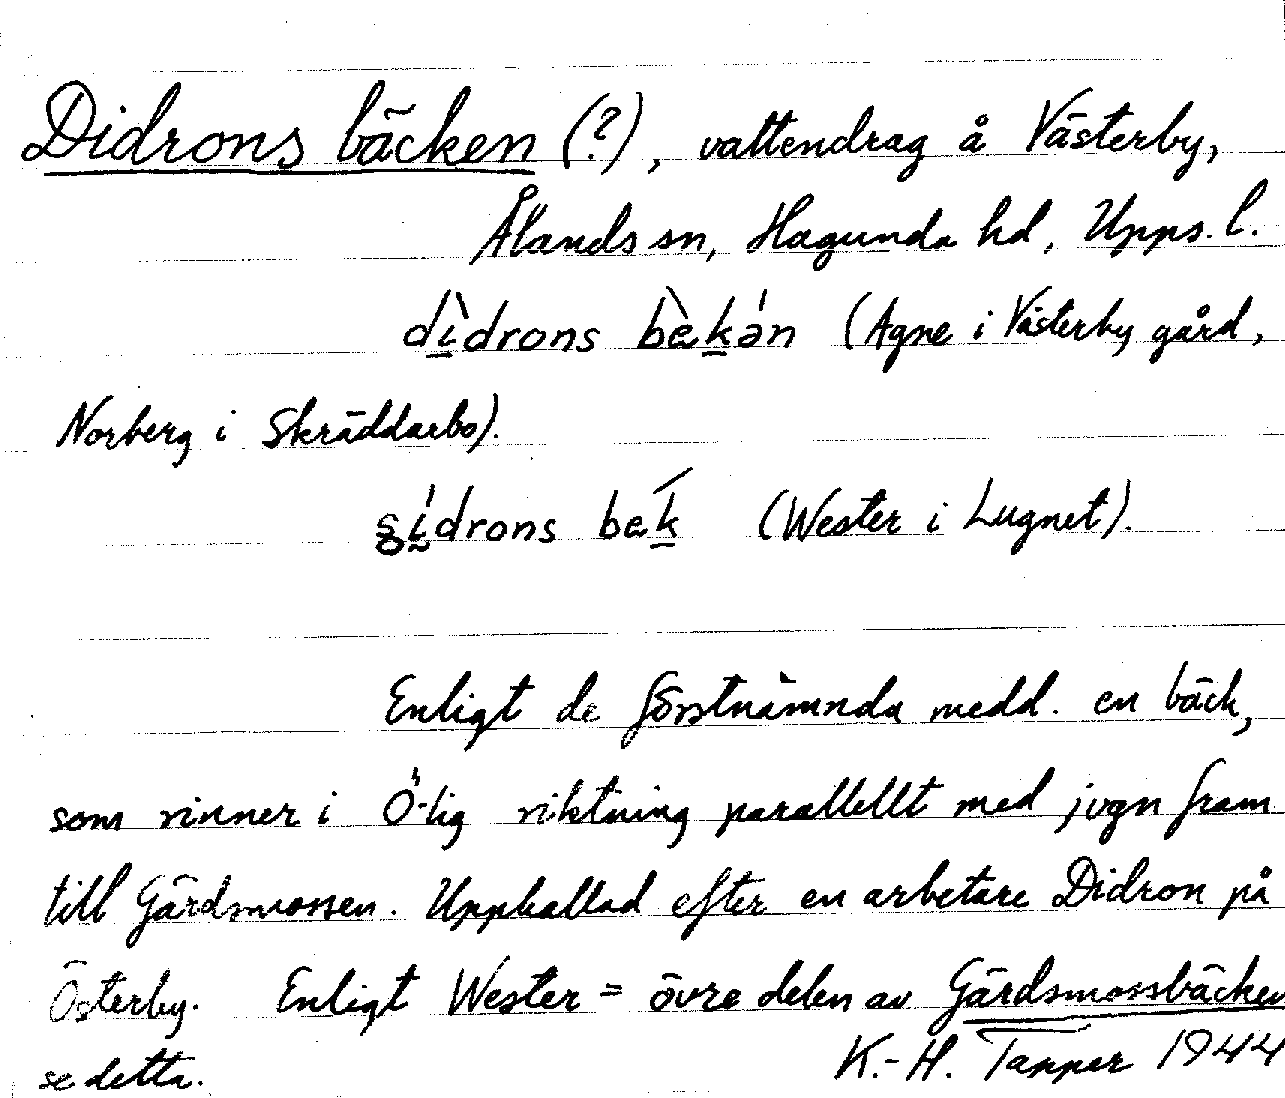 Didrons bäcken (?), vattendrag å Västerby,
Ålands sn, Hagunda hd, Upps. l.
dìdrons bèkán (Agne i Västerby gård,
Norberg i Skräddarbo).
drons bek (Wester i Lugnet).
Enligt de förstnämnda medd. en bäck,
som rinner i Ö-lig riktning parallellt med jvgn fram
till Gärdsmossen. Uppkallad efter en arbetare Didron på
Österby. Enligt Wester = övre delen av Gärdsmossbäcken
se detta. K.-H. Tapper 1944